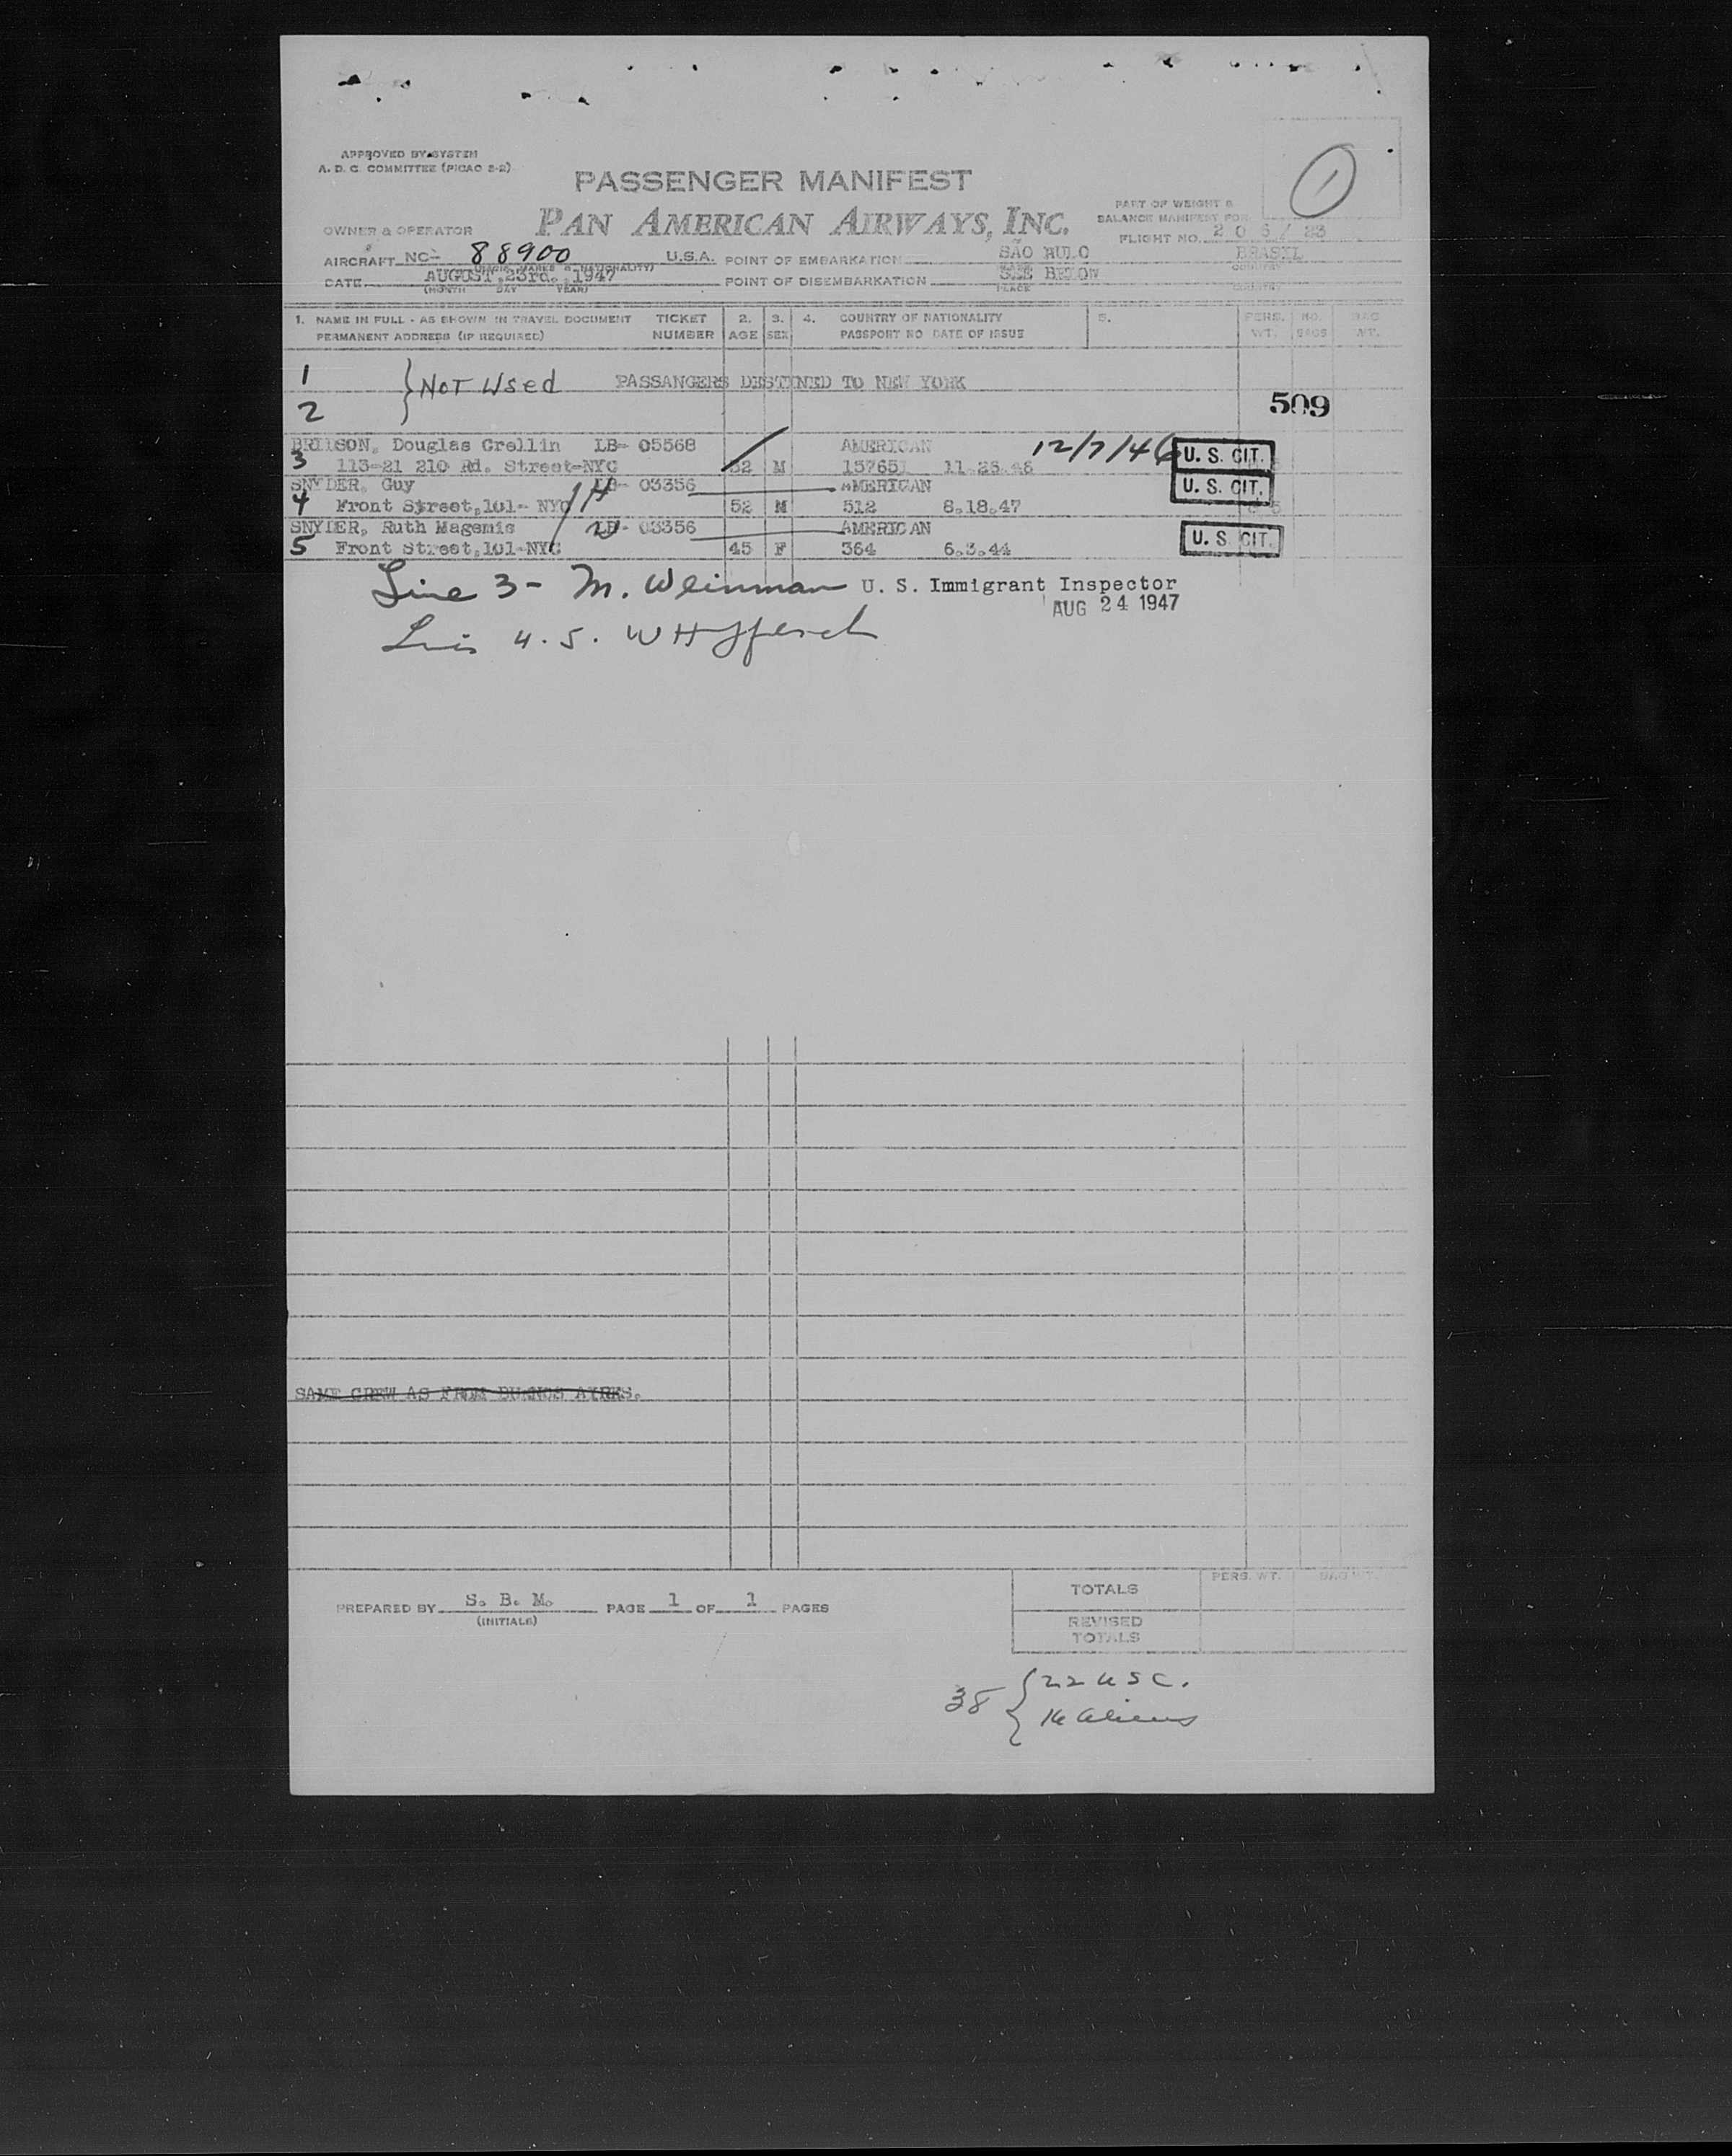 APPROVED BY SYSTEM
A. D. C. COMMITTEE (PICAO 2-2)
1
PASSENGER MANIFEST
PAN AMERICAN AIRWAYS, INC.
PART OF WEIGHT &
BALANCE MANIFEST FOR
OWNER & OPERATOR
FLIGHT NO. 2 0 / 23
AIRCRAFT NC- 88900 U.S.A. POINT OF EMBARKATION SÃO AULO BRASIL
DATE AUGUST,23rd.,1947 POINT OF DISEMBARKATION SEE BELOW
(MONTH DAY YEAR) PLACE COUNTRY
1. NAME IN FULL - AS SHOWN IN TRAVEL DOCUMENT TICKET 2. 3. 4. COUNTRY OF NATIONALITY 5. PERS. NO. BAG
PERMANENT ADDRESS (IF REQUIRED) NUMBER AGE SEX PASSPORT NO DATE OF ISSUE WT. BAGS WT.
1 } Not Used PASSANGERS DESTINED TO NEW YORK
2 509
Douglas Crellin LB- 05568 AMERICAN 12/7/46 U. S. CIT.
3 113-21 210 Rd. Street-NYC 52 M 11.26.46
SNYDER, Guy LB- 03356 AMERICAN U. S. CIT.
4 Front Street,101- NYC 52 M 512 8.18.47
SNYDER, Ruth Magemis LB- 03356 AMERICAN
5 Front Street,101-NYC 45 F 364 6.3.44 U. S. CIT.
Line 3- M. Weinman U. S. Immigrant Inspector
AUG 24 1947
4. 5.
SAME CREW AS FROM BUENOS AYRES.
PREPARED BY S. B. M. PAGE 1 OF 1 PAGES
(INITIALS)
PERS. WT. BAG WT.
TOTALS
REVISED
TOTALS
38 { 22 USC.
16 aliens